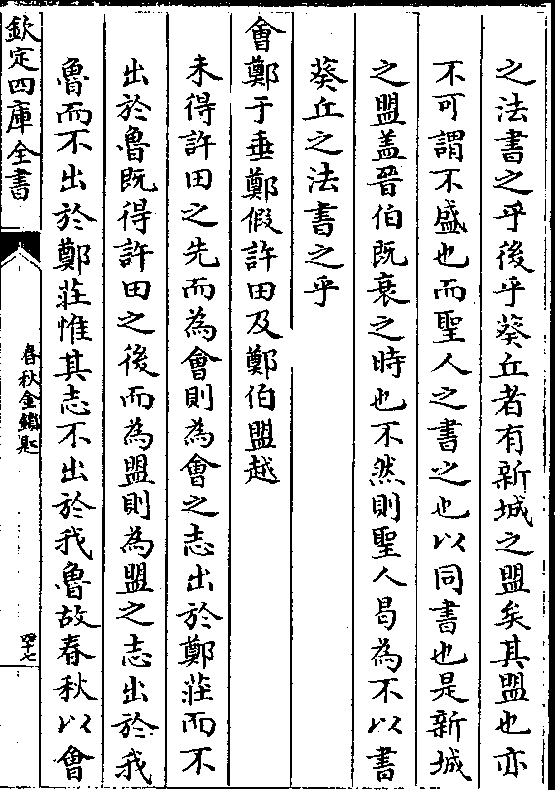 之法書之乎後乎葵丘者有新城之盟矣其盟也亦
不可謂不盛也而聖人之書之也以同書也是新城
之盟盖晉伯既衰之時也不然則聖人曷為不以書
葵丘之法書之乎
會鄭于垂鄭假許田及鄭伯盟越
未得許田之先而為會則為會之志出於鄭莊而不
出於魯既得許田之後而為盟則為盟之志出於我
魯而不出於鄭莊惟其志不出於我魯故春秋以會
欽定四庫全書
春秋金鎖匙
四十七